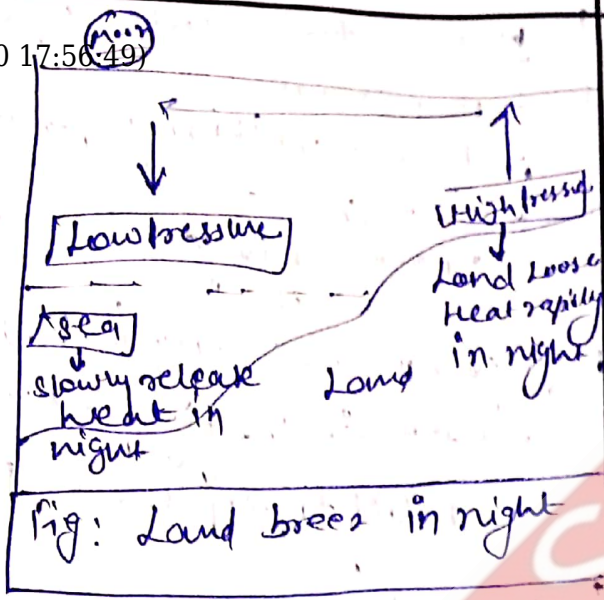 Moon
0 17:56:49)
Low pressure
High pressu
Land Loose
Heat rapidly
in night
sea
slowly release
heat in
night
Land
Fig: Land breez in night